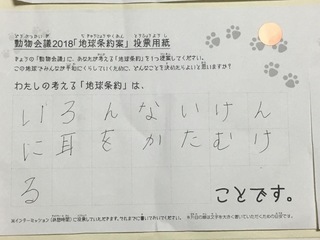 動物会議2018「地球条約案」投票用紙
きょうの「動物会議」に、あなたが考える「地球条約」を1つ提案してください。
この地球でみんなが平和にくらしていくために、どんなことを決めたらよいと思いますか?
わたしの考える「地球条約」は、
いろんないけん
に耳をかたむけ
る
ことです。